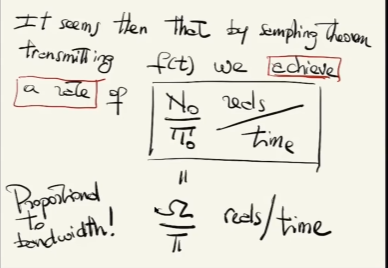 It seems then that by sampling theorem
transmitting f(t) we achieve
a rate of N₀/T₀ reals/time
=
Proportional to bandwidth! Ω/π reals/time